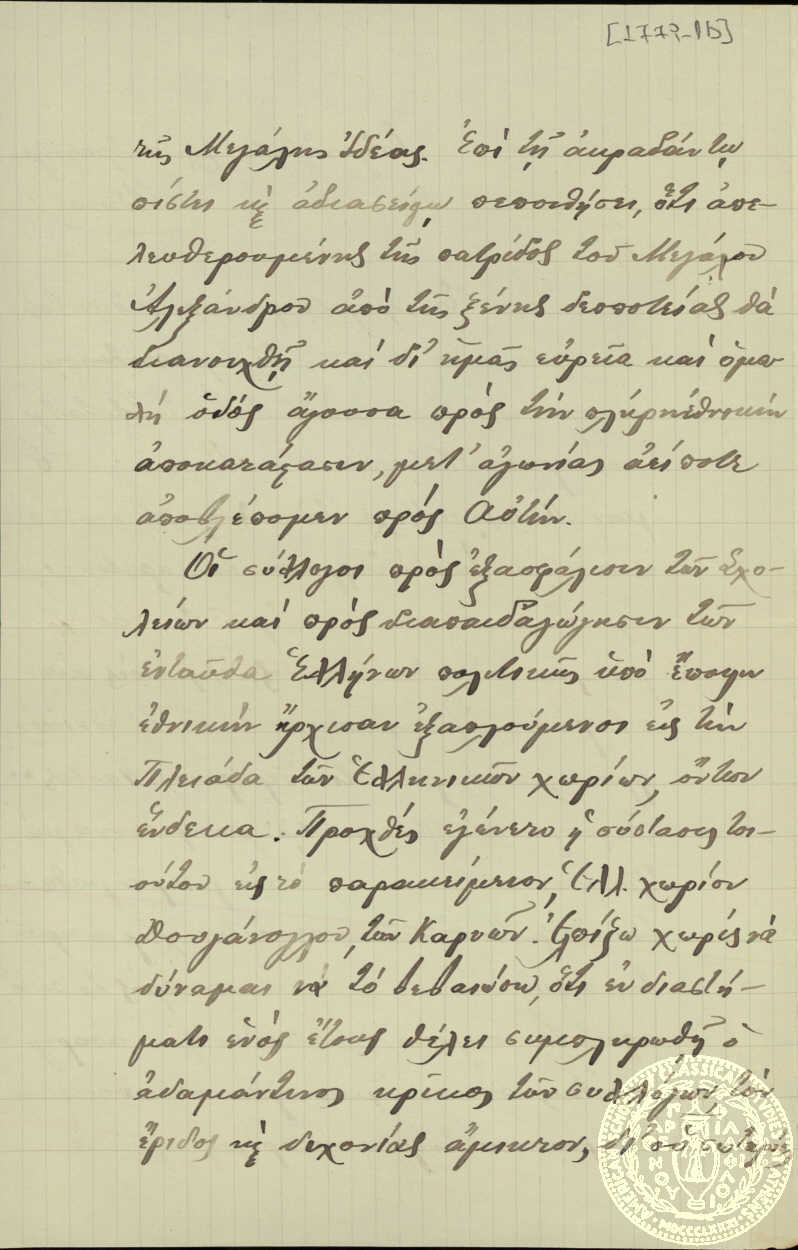 [1779-1b]
τῆς Μεγάλης Ἰδέας. Ἐπὶ τῇ ἀκραδάντῳ
πίστει κ ἀδιασείστῳ πεποιθήσει, ὅτι ἀπε-
λευθερουμένης τῆς πατρίδος τοῦ Μεγάλου
Ἀλεξάνδρου ἀπὸ τῆς ξένης δεσποτείας θὰ
διανοιχθῇ καὶ δι' ἡμᾶς εὐρεῖα καὶ ὁμα-
λὴ ὁδὸς ἄγουσα πρὸς τὴν
ἀποκατάστασιν, μετ' ἀγωνίας ἀείποτε
ἀποβλέπομεν πρὸς Αὐτήν.
Οἱ σύλλογοι πρὸς ἐξασφάλισιν τῶν Σχο-
λείων καὶ πρὸς διαπαιδαγώγησιν τῶν
ἐνταῦθα Ἑλλήνων πολιτικῆς ὑπὸ ἔποψιν
ἐθνικὴν ἤρχισαν ἐξαπλούμενοι εἰς τὴν
Πλειάδα τῶν Ἑλληνικῶν χωρίων, ὄντων
ἕνδεκα. Προχθὲς ἐγένετο ἡ σύστασις τοι-
ούτου εἰς τὸ παρακείμενον Ἑλλ. χωρίον
τῶν Καρυῶν. Ἐλπίζω χωρὶς νὰ
δύναμαι νὰ τὸ βεβαιώσω, ὅτι ἐν διαστή-
ματι ἑνὸς ἔτους θέλει συμπληρωθῆ ὁ
ἀδαμάντινος κρίκος τῶν συλλόγων, τῶν
ἔριδος κ διχονίας ἄμικτος, δι' οὗ